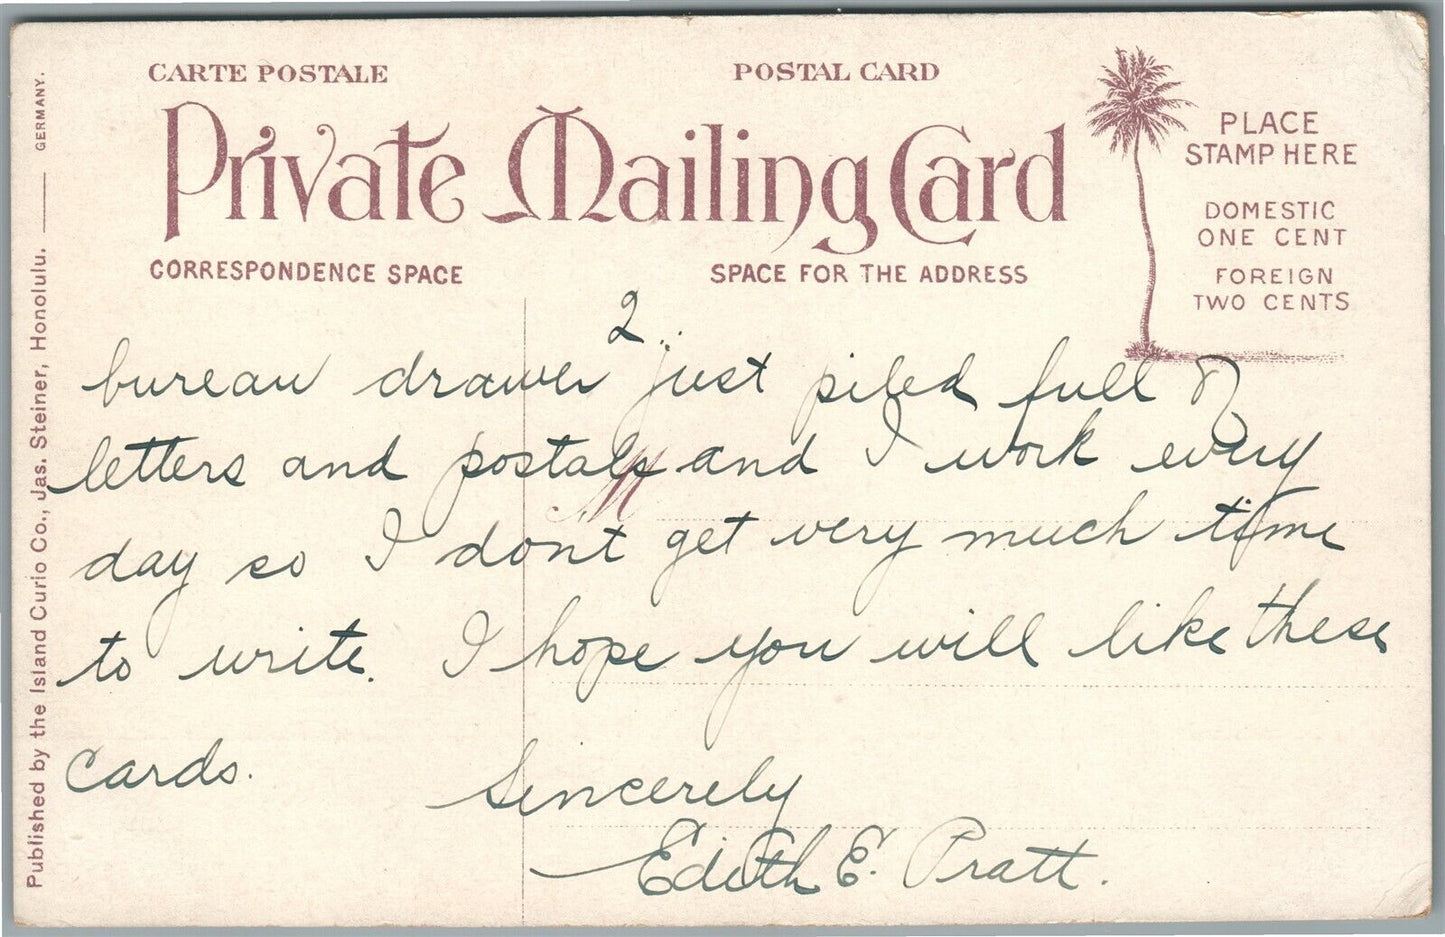 CARTE POSTALE
POSTAL CARD
Private Mailing Card
PLACE
STAMP HERE
DOMESTIC
ONE CENT
FOREIGN
TWO CENTS
CORRESPONDENCE SPACE
SPACE FOR THE ADDRESS
2
bureau drawer just piled full of
letters and postals and I work every
day so I dont get very much time
to write. I hope you will like these
cards.
Sincerely
Edith E. Pratt.
M
Published by the Island Curio Co., Jas. Steiner, Honolulu. —— GERMANY.